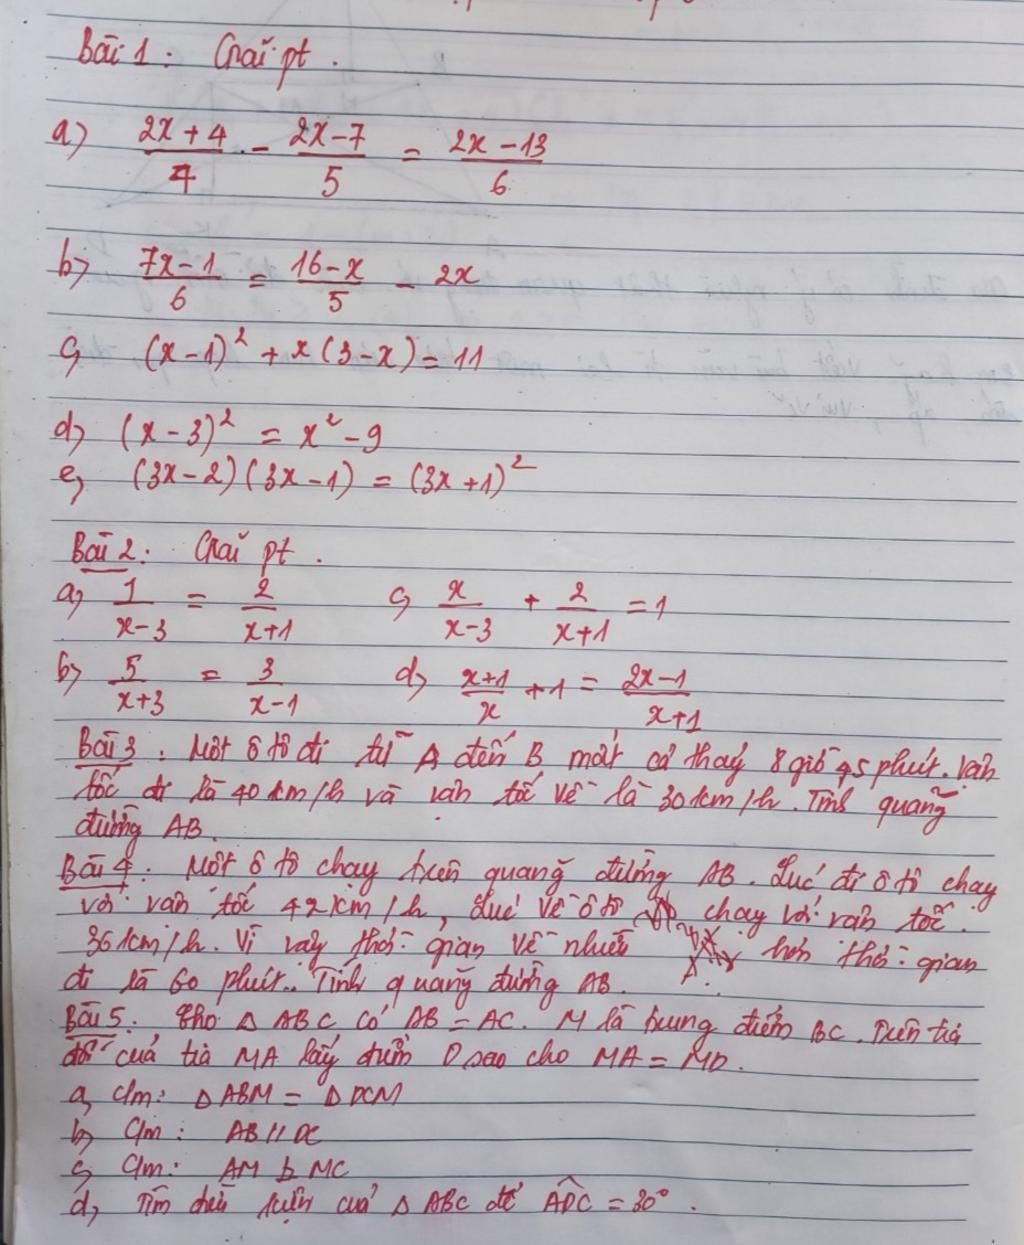 Bài 1: Giải pt.
a) (2x+4)/4 - (2x-7)/5 = (2x-13)/6
b) (7x-1)/6 = (16-x)/5 - 2x
c) (x-1)² + x(3-x) = 11
d) (x-3)² = x² - 9
e) (3x-2)(3x-1) = (3x+1)²
Bài 2: Giải pt.
a) 1/(x-3) = 2/(x+1) c) x/(x-3) + 2/(x+1) = 1
b) 5/(x+3) = 3/(x-1) d) (x+1)/x + 1 = (2x-1)/(x+1)
Bài 3: Một ô tô đi từ A đến B mất cả thảy 8 giờ 45 phút. Vận
tốc đi là 40 km/h và vận tốc về là 30 km/h. Tính quãng
đường AB.
Bài 4: Một ô tô chạy trên quãng đường AB. Lúc đi ô tô chạy
với vận tốc 42 km/h, lúc về ô tô chạy với vận tốc
36 km/h. Vì vậy thời gian về nhiều hơn thời gian
đi là 60 phút. Tính quãng đường AB.
Bài 5: Cho Δ ABC có AB = AC. M là trung điểm BC. Trên tia
đối của tia MA lấy điểm D sao cho MA = MD.
a, C/m: Δ ABM = Δ DCM
b, C/m: AB // DC
c, C/m: AM ⊥ MC
d, Tìm điều kiện của Δ ABC để ADC = 30°.